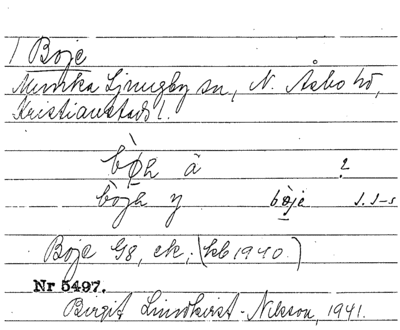 1 Boje
Munka Ljungby sn, N. Åsbo hd,
Kristianstads l.
bøh ä ?
y bøje J. S-s
Boje G8, ek; (kb 1940)
Nr 5497.
Birgit Lindkvist-Nilsson, 1941.